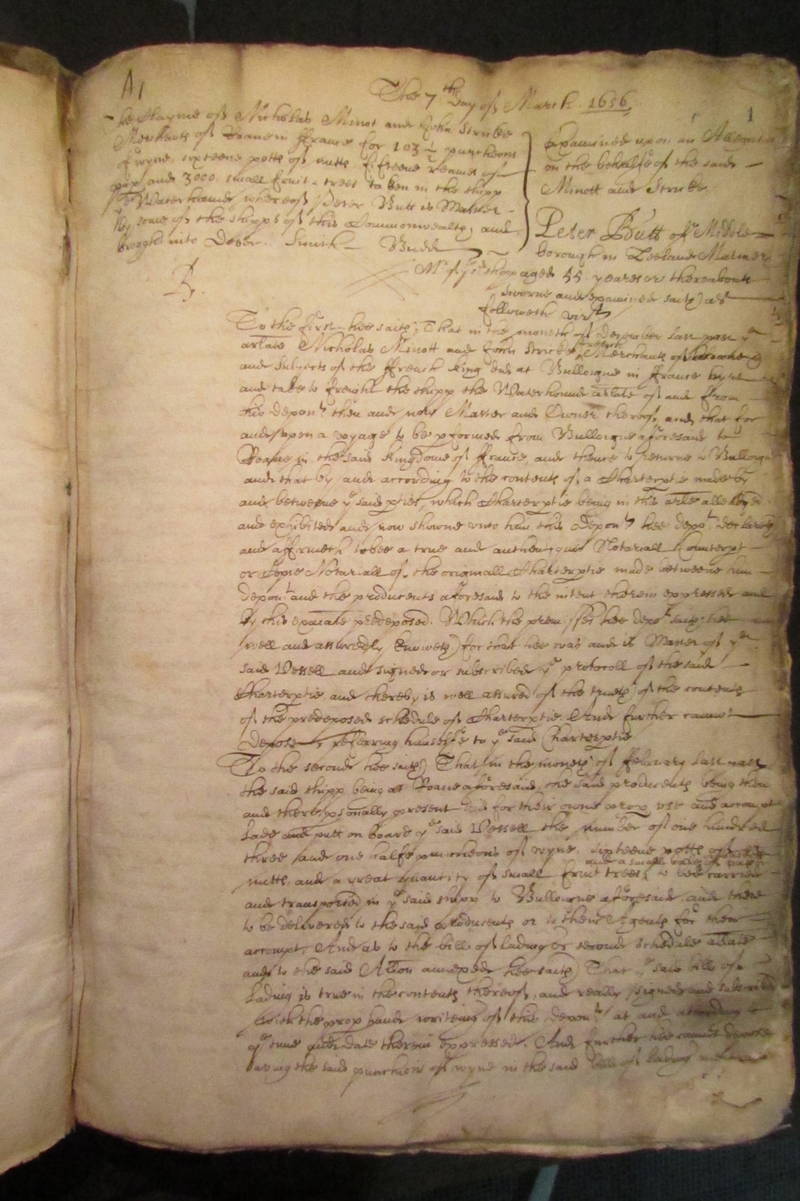 A1
The 7th Day of March. 1656.
1
The Clayme of Nicholas Minot and John Strube
Merchants of Roane in ffrance for 103 ½ punchions
of wyne, sixteene potts of nutts, fifteene reames of
paper and 3000 small fruit trees taken in the shipp
the Waterhound whereof Peter Butt is Master
by some of the shipps of this Commonwealth, and
brought into Dover. Smith Budd
Examined upon an Allegation
on the behalfe of the said
Minott and Strube.
Peter Butt of Middle
borough in Zeeland Mariner
Mr of ye shipp aged 55 yeares or thereabouts
sworne and examined saith as
followeth vizt
To the first hee saith, That in the moneth of December last past ye
arlate Nicholas Minott and John Strube Merchants of Roane
and Subjects of the ffrench King did at Bullogne in ffrance hyre
and take to freight the shipp the Waterhound arlate of and from
this deponent then and now Master and Owner thereof, and that for
and upon a voyage to be pformed from Bullogne aforesaid to
Roane in the said Kingdome of ffrance, and thence to returne to Bullogne
and that by and according to the contents of a Charterptie made by
and betweene ye said pties, which Charterptie being in this arlate alleadged
and exhibited and now showne unto him this Deponent hee deposeth declareth
and affirmeth to bee a true and authentique Notariall Counterpt
or Copie Notariall of the originall Charterptie made betweene him
deponent and the producents aforesaid to the intent therein expressed and
by this examinate predeposed. Which the premisses hee deponent saith hee
well and assuredly knoweth for that hee was and is Master of ye
said Vessell and signed or subscribed ye protocoll of the said
Charterptie and thereby is well assured of the trueth of the contents
of the predeposed schedule of Charterptie. And further cannot
depose, referring himselfe to ye said Charterptie
To the second hee saith, That in the moneth of ffebruary last past
the said shipp being at Roane aforesaid, the said producents being then
and there psonally present did for their owne prop use and accompt
lade and putt on board ye said Vessell the number of one hundred
three and one halfe punchions of wyne, sixteene potts of
and a small
nutts, and a great quantity of small fruit trees, to bee carried
and transported in ye said shipp to Bullogne aforesaid and there
to be delivered to the said producents or to their Agents for their
accompt. And as to the bill of lading or second schedule arlate
and to the said Allon annexed, hee saith That ye said bill of
lading is true in the contents thereof, and really signed and subscribed
with the prop hand writeing of this deponent at and according to
ye time and date therein expressed. And further hee cannot depose
saving the said punchions of wyne in the said bill of lading